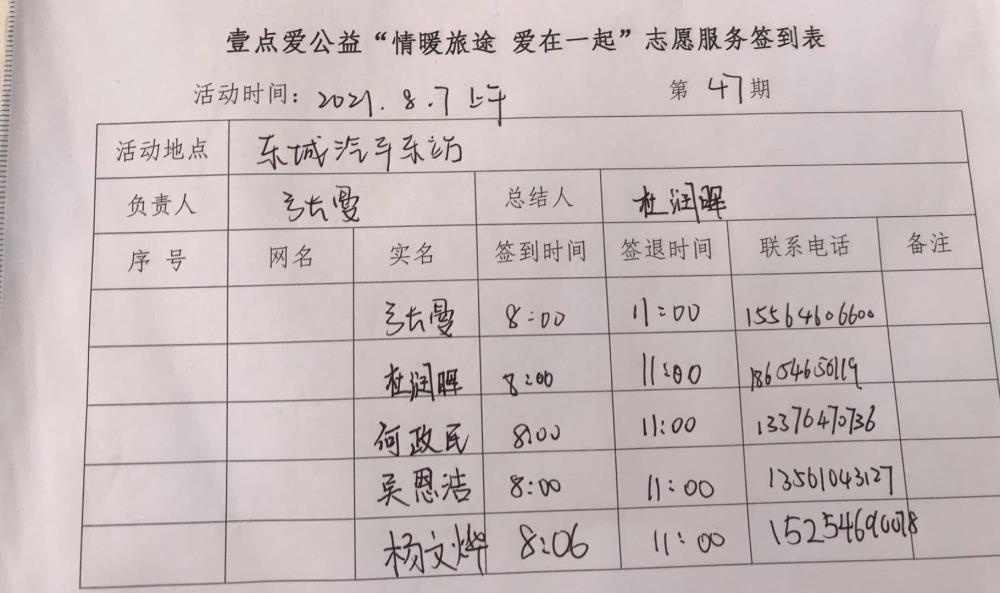 壹点爱公益“情暖旅途 爱在一起”志愿服务签到表
活动时间：2021.8.7上午 第47期
活动地点 东城汽车东站
负责人 张曼 总结人 杜润晖
序号 网名 实名 签到时间 签退时间 联系电话 备注
张曼 8:00 11:00 15564606600
杜润晖 8:00 11:00 18654656119
何政民 8:00 11:00 13376470736
吴恩浩 8:00 11:00 13561043127
杨文烨 8:06 11:00 15254690078